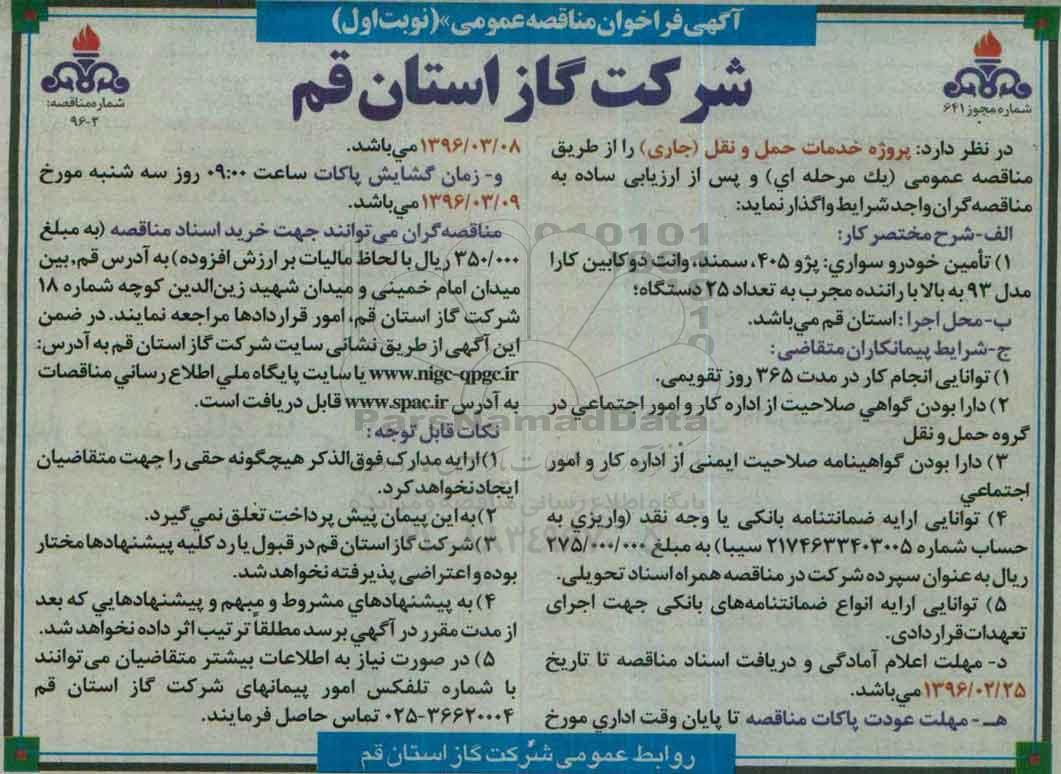 آگهی فراخوان مناقصه عمومی»(نوبت اول)
شرکت گاز استان قم
شماره مجوز ۶۴۱
شماره مناقصه:
۹۶-۲
در نظر دارد: پروژه خدمات حمل و نقل (جاری) را از طریق
مناقصه عمومی (یك مرحله اي) و پس از ارزیابی ساده به
مناقصه گران واجد شرایط واگذار نماید:
الف-شرح مختصر کار:
۱) تأمین خودرو سواري: پژو ۴۰۵، سمند، وانت دوکابین کارا
مدل ۹۳ به بالا با راننده مجرب به تعداد ۲۵ دستگاه؛
ب-محل اجرا :استان قم مي‌باشد.
ج-شرایط پیمانکاران متقاضی:
۱) توانایی انجام کار در مدت ۳۶۵ روز تقویمی.
۲) دارا بودن گواهي صلاحیت از اداره کار و امور اجتماعي در
گروه حمل و نقل
۳) دارا بودن گواهینامه صلاحیت ایمنی از اداره کار و امور
اجتماعي
۴) توانایی ارایه ضمانتنامه بانکی یا وجه نقد (واریزی به
حساب شماره ۲۱۷۴۶۳۳۴۰۳۰۰۵ سیبا) به مبلغ ۲۷۵/۰۰۰/۰۰۰
ریال به عنوان سپرده شرکت در مناقصه همراه اسناد تحویلی.
۵) توانایی ارایه انواع ضمانتنامه‌های بانکی جهت اجرای
تعهدات قراردادی.
د- مهلت اعلام آمادگی و دریافت اسناد مناقصه تا تاریخ
۱۳۹۶/۰۲/۲۵ مي‌باشد.
هـ- مهلت عودت پاکات مناقصه تا پایان وقت اداري مورخ
۱۳۹۶/۰۳/۰۸ مي‌باشد.
و- زمان گشایش پاکات ساعت ۰۹:۰۰ روز سه شنبه مورخ
۱۳۹۶/۰۳/۰۹ مي‌باشد.
مناقصه گران می‌توانند جهت خرید اسناد مناقصه (به مبلغ
۳۵۰/۰۰۰ ریال با لحاظ مالیات بر ارزش افزوده) به آدرس قم، بین
میدان امام خمینی و میدان شهید زین‌الدین کوچه شماره ۱۸
شرکت گاز استان قم، امور قراردادها مراجعه نمایند. در ضمن
این آگهی از طریق نشانی سایت شرکت گاز استان قم به آدرس:
www.nigc-qpgc.ir یا سایت پایگاه ملي اطلاع رساني مناقصات
به آدرس www.spac.ir قابل دریافت است.
نکات قابل توجه:
۱)ارایه مدارک فوق‌الذکر هیچگونه حقی را جهت متقاضیان
ایجاد نخواهد کرد.
۲)به این پیمان پیش پرداخت تعلق نمي گیرد.
۳)شرکت گاز استان قم در قبول یا رد کلیه پیشنهادها مختار
بوده و اعتراضی پذیرفته نخواهد شد.
۴) به پیشنهادهاي مشروط و مبهم و پیشنهادهایي که بعد
از مدت مقرر در آگهي برسد مطلقاً ترتیب اثر داده نخواهد شد.
۵) در صورت نیاز به اطلاعات بیشتر متقاضیان می‌توانند
با شماره تلفکس امور پیمانهای شرکت گاز استان قم
۰۲۵-۳۶۶۲۰۰۰۴ تماس حاصل فرمایند.
روابط عمومی شرکت گاز استان قم
ParsNamadData